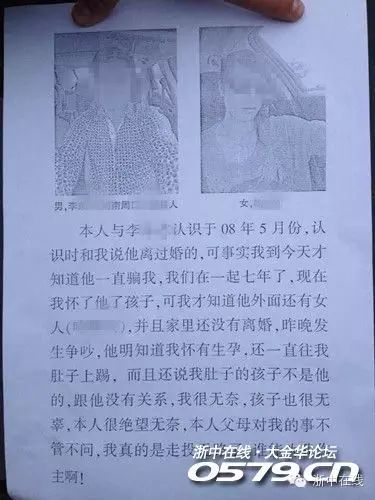 男,李 南周口 人
女,
本人与李 认识于 08 年 5 月份,认
识时和我说他离过婚的,可事实我到今天才
知道他一直骗我,我们在一起七年了,现在
我怀了他了孩子,可我才知道他外面还有女
人( ),并且家里还没有离婚,昨晚发
生争吵,他明知道我怀有生孕,还一直往我
肚子上踢,而且还说我肚子的孩子不是他
的,跟他没有关系,我很无奈,孩子也很无
辜,本人很绝望无奈,本人父母对我的事不
管不问,我真的是走投
主啊!
浙中在线·大金华论坛
0579.CN
浙中在线